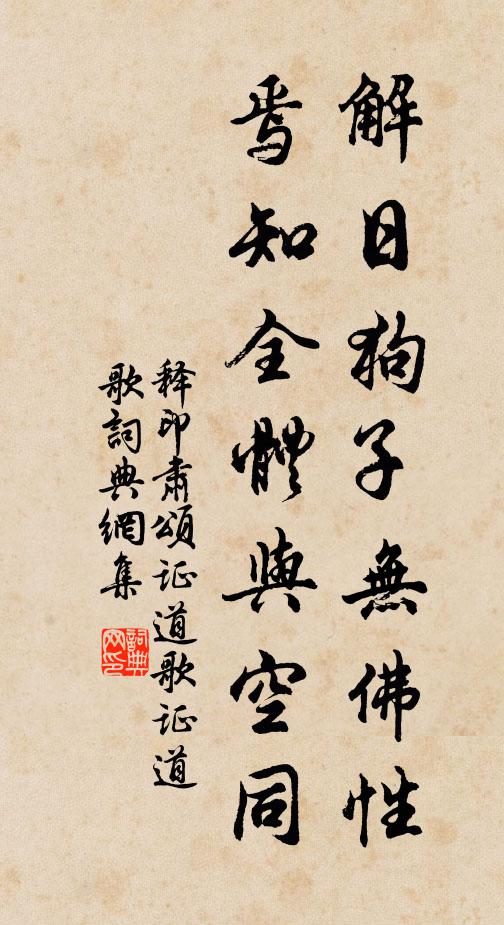 解日狗子無佛性
焉知全體與空同
释印肃頌证道歌证道
歌詞典網集
詞典
网印